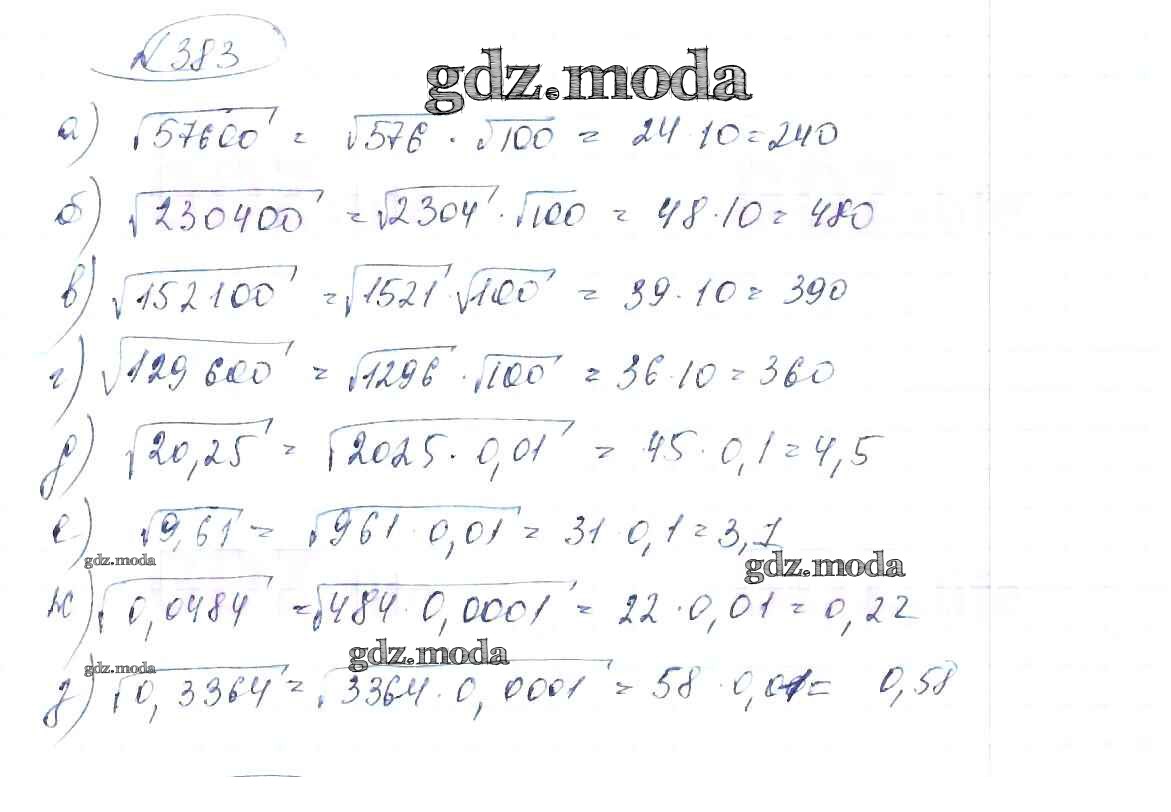 № 383
gdz.moda
а) √57600 = √576 · √100 = 24 · 10 = 240
б) √230400 = √2304 · √100 = 48 · 10 = 480
в) √152100 = √1521 · √100 = 39 · 10 = 390
г) √129600 = √1296 · √100 = 36 · 10 = 360
д) √20,25 = √2025 · 0,01 = 45 · 0,1 = 4,5
е) √9,61 = √961 · 0,01 = 31 · 0,1 = 3,1
gdz.moda
gdz.moda
ж) √0,0484 = √484 · 0,0001 = 22 · 0,01 = 0,22
gdz.moda
gdz.moda
з) √0,3364 = √3364 · 0,0001 = 58 · 0,01 = 0,58